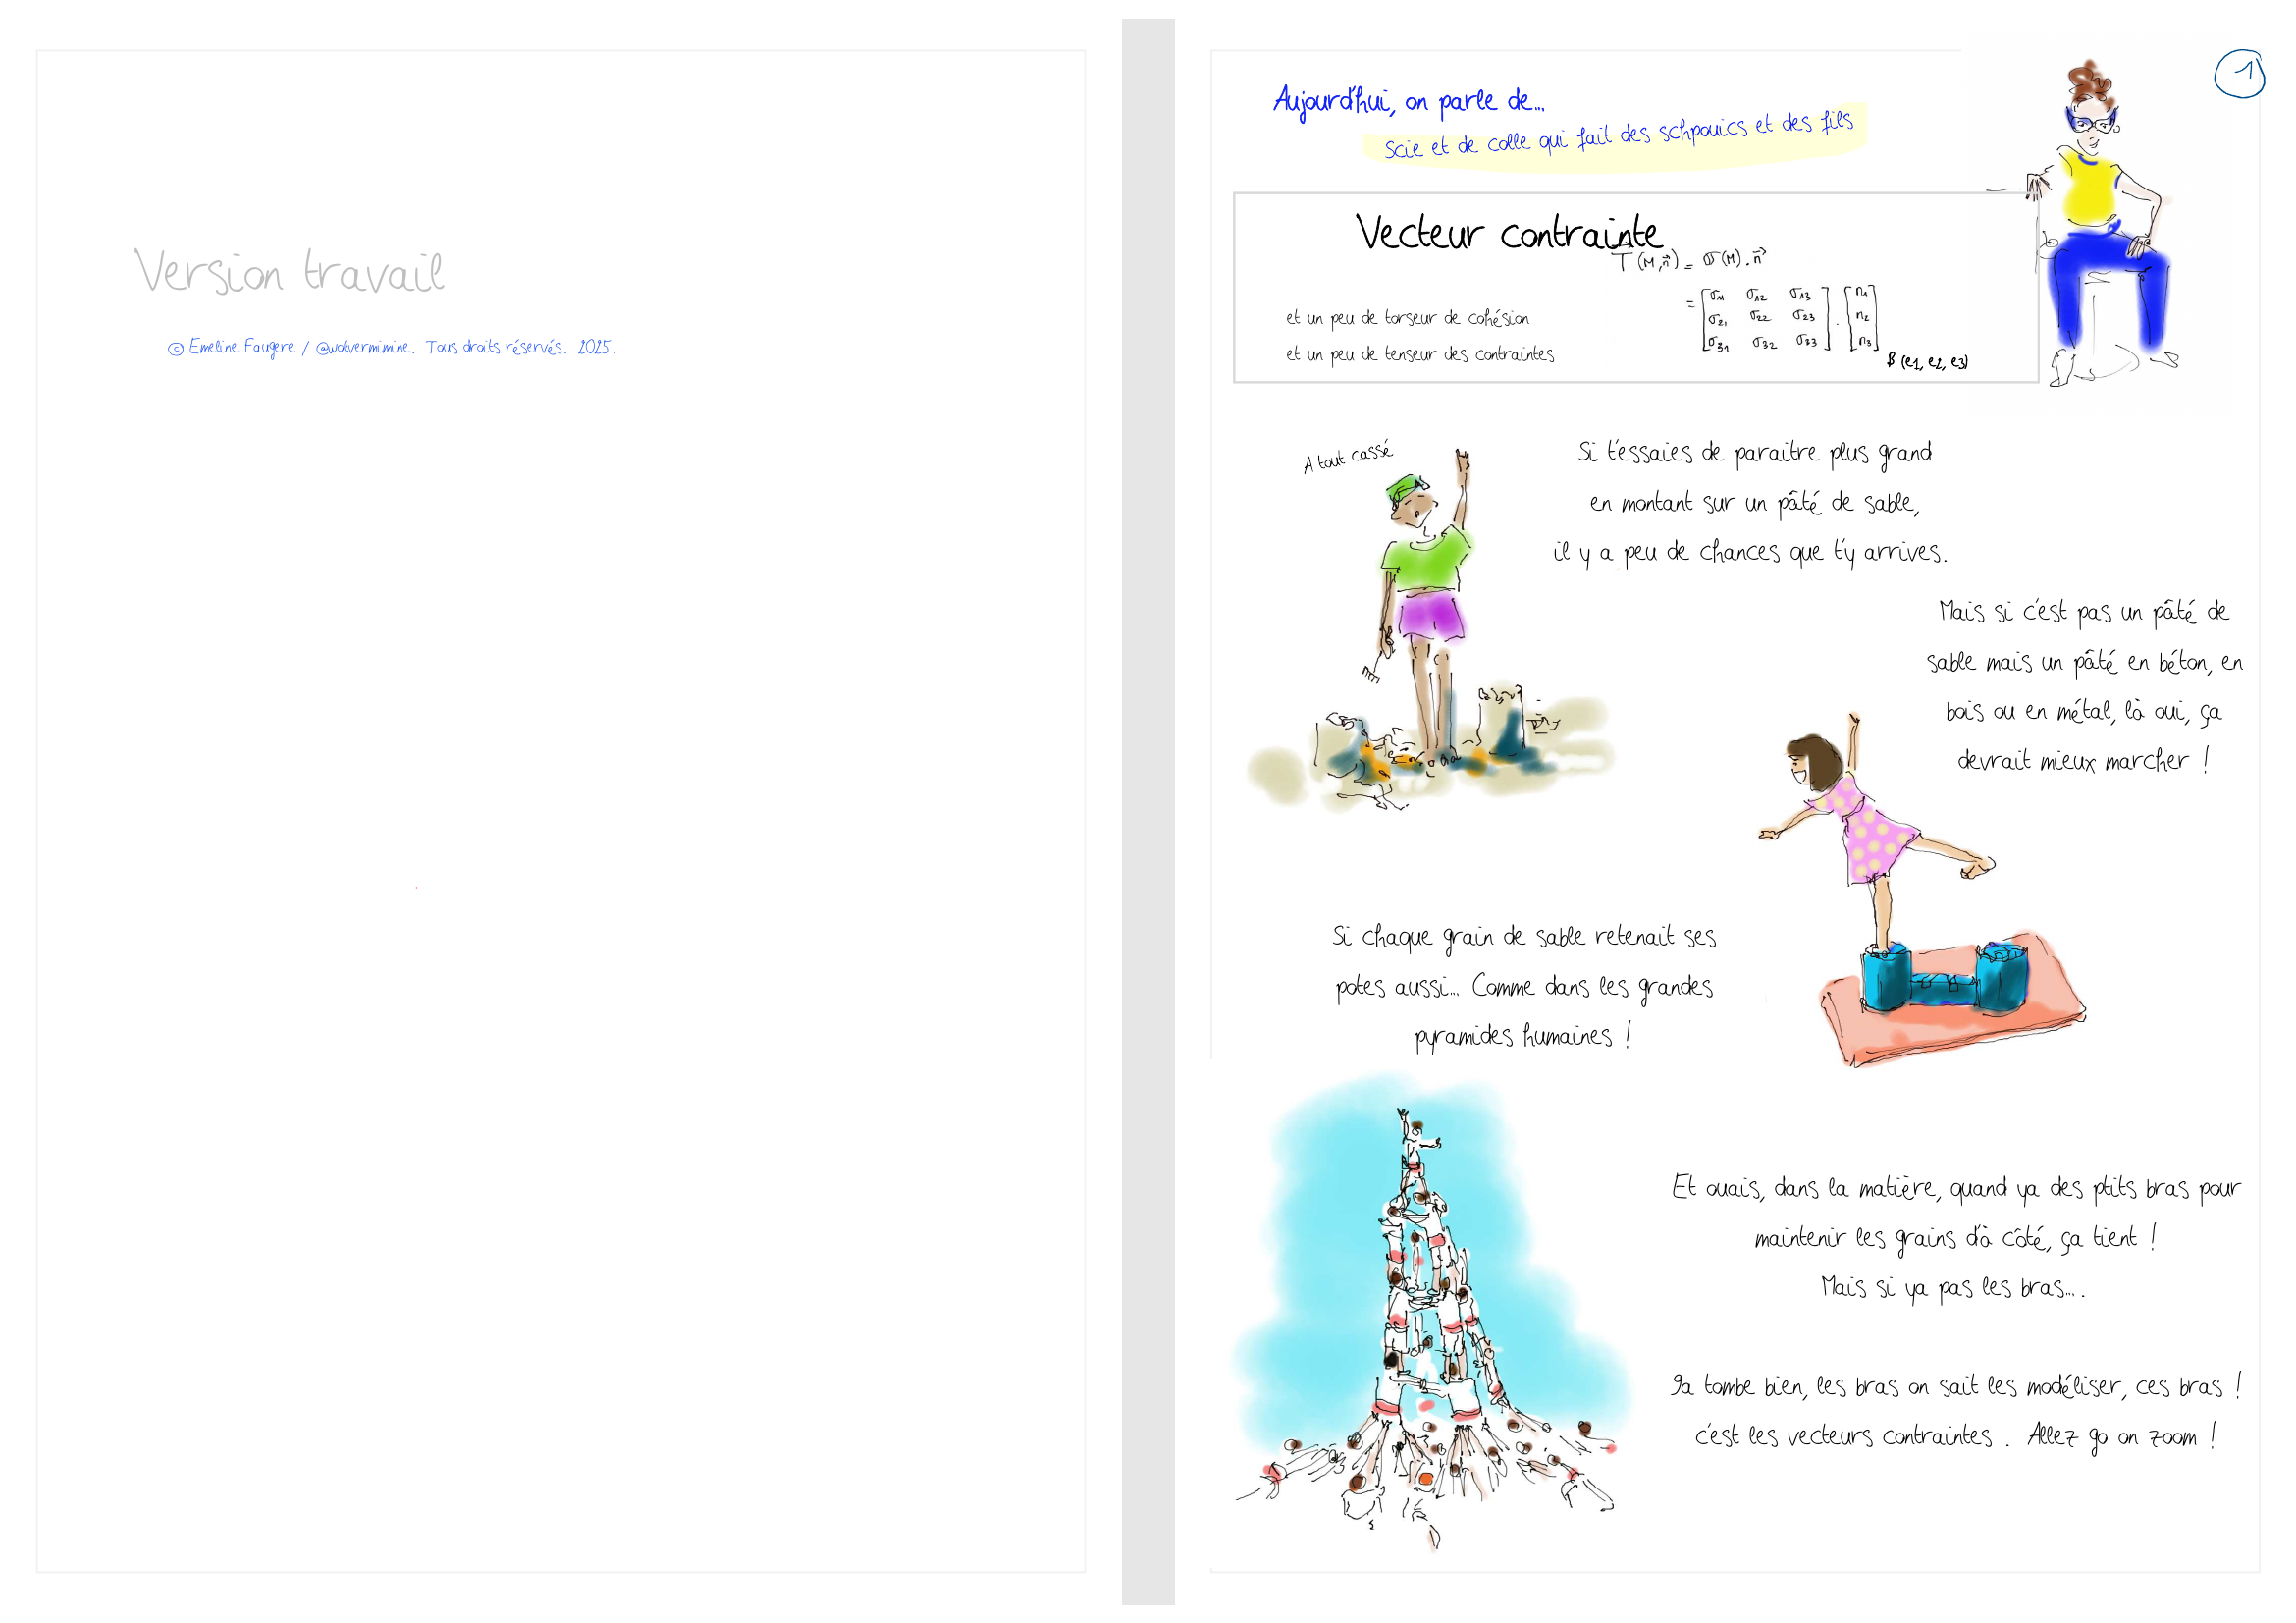 Version travail
© Emeline Faugere / @wolvermimine. Tous droits réservés. 2025.
1
Aujourd'hui, on parle de...
Scie et de colle qui fait des schpouics et des fils
Vecteur contrainte
T (M,n⃗) = σ(M) . n⃗
= [σ11 σ12 σ13] . [n1]
[σ21 σ22 σ23] [n2]
[σ31 σ32 σ33] [n3]
B (e1, e2, e3)
et un peu de torseur de cohésion
et un peu de tenseur des contraintes
A tout cassé
Si t'essaies de paraitre plus grand
en montant sur un pâté de sable,
il y a peu de chances que t'y arrives.
Mais si c'est pas un pâté de
sable mais un pâté en béton, en
bois ou en métal, là oui, ça
devrait mieux marcher !
Si chaque grain de sable retenait ses
potes aussi... Comme dans les grandes
pyramides humaines !
Et ouais, dans la matière, quand ya des ptits bras pour
maintenir les grains d'à côté, ça tient !
Mais si ya pas les bras....
Ça tombe bien, les bras on sait les modéliser, ces bras !
c'est les vecteurs contraintes . Allez go on zoom !